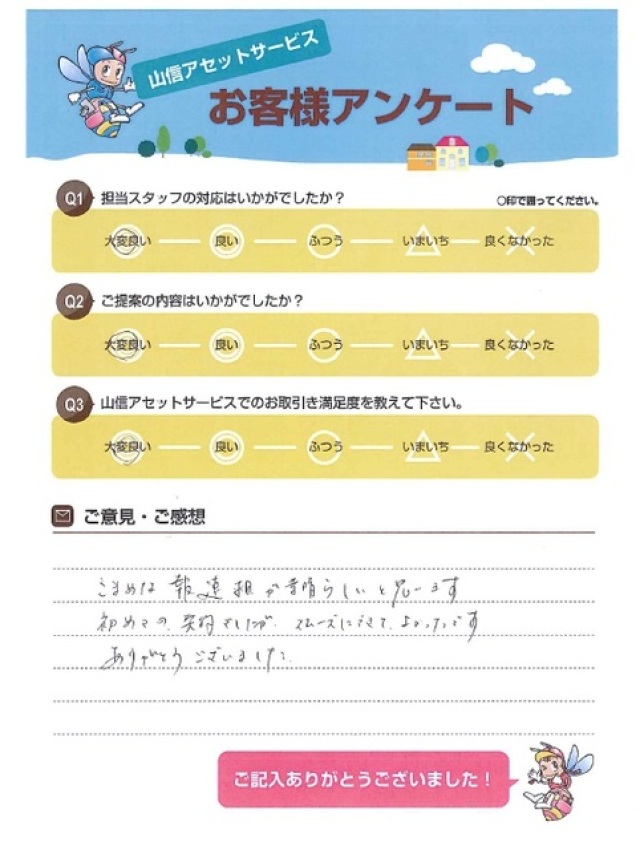 山信アセットサービス
お客様アンケート
Q1 担当スタッフの対応はいかがでしたか？
○印で囲ってください。
大変良い 良い ふつう いまいち 良くなかった
Q2 ご提案の内容はいかがでしたか？
大変良い 良い ふつう いまいち 良くなかった
Q3 山信アセットサービスでのお取引き満足度を教えて下さい。
大変良い 良い ふつう いまいち 良くなかった
ご意見・ご感想
こまめな 報連相が素晴らしいと思います
初めての契約でしたが、スムーズにできて、よかったです
ありがとうございました。
ご記入ありがとうございました！